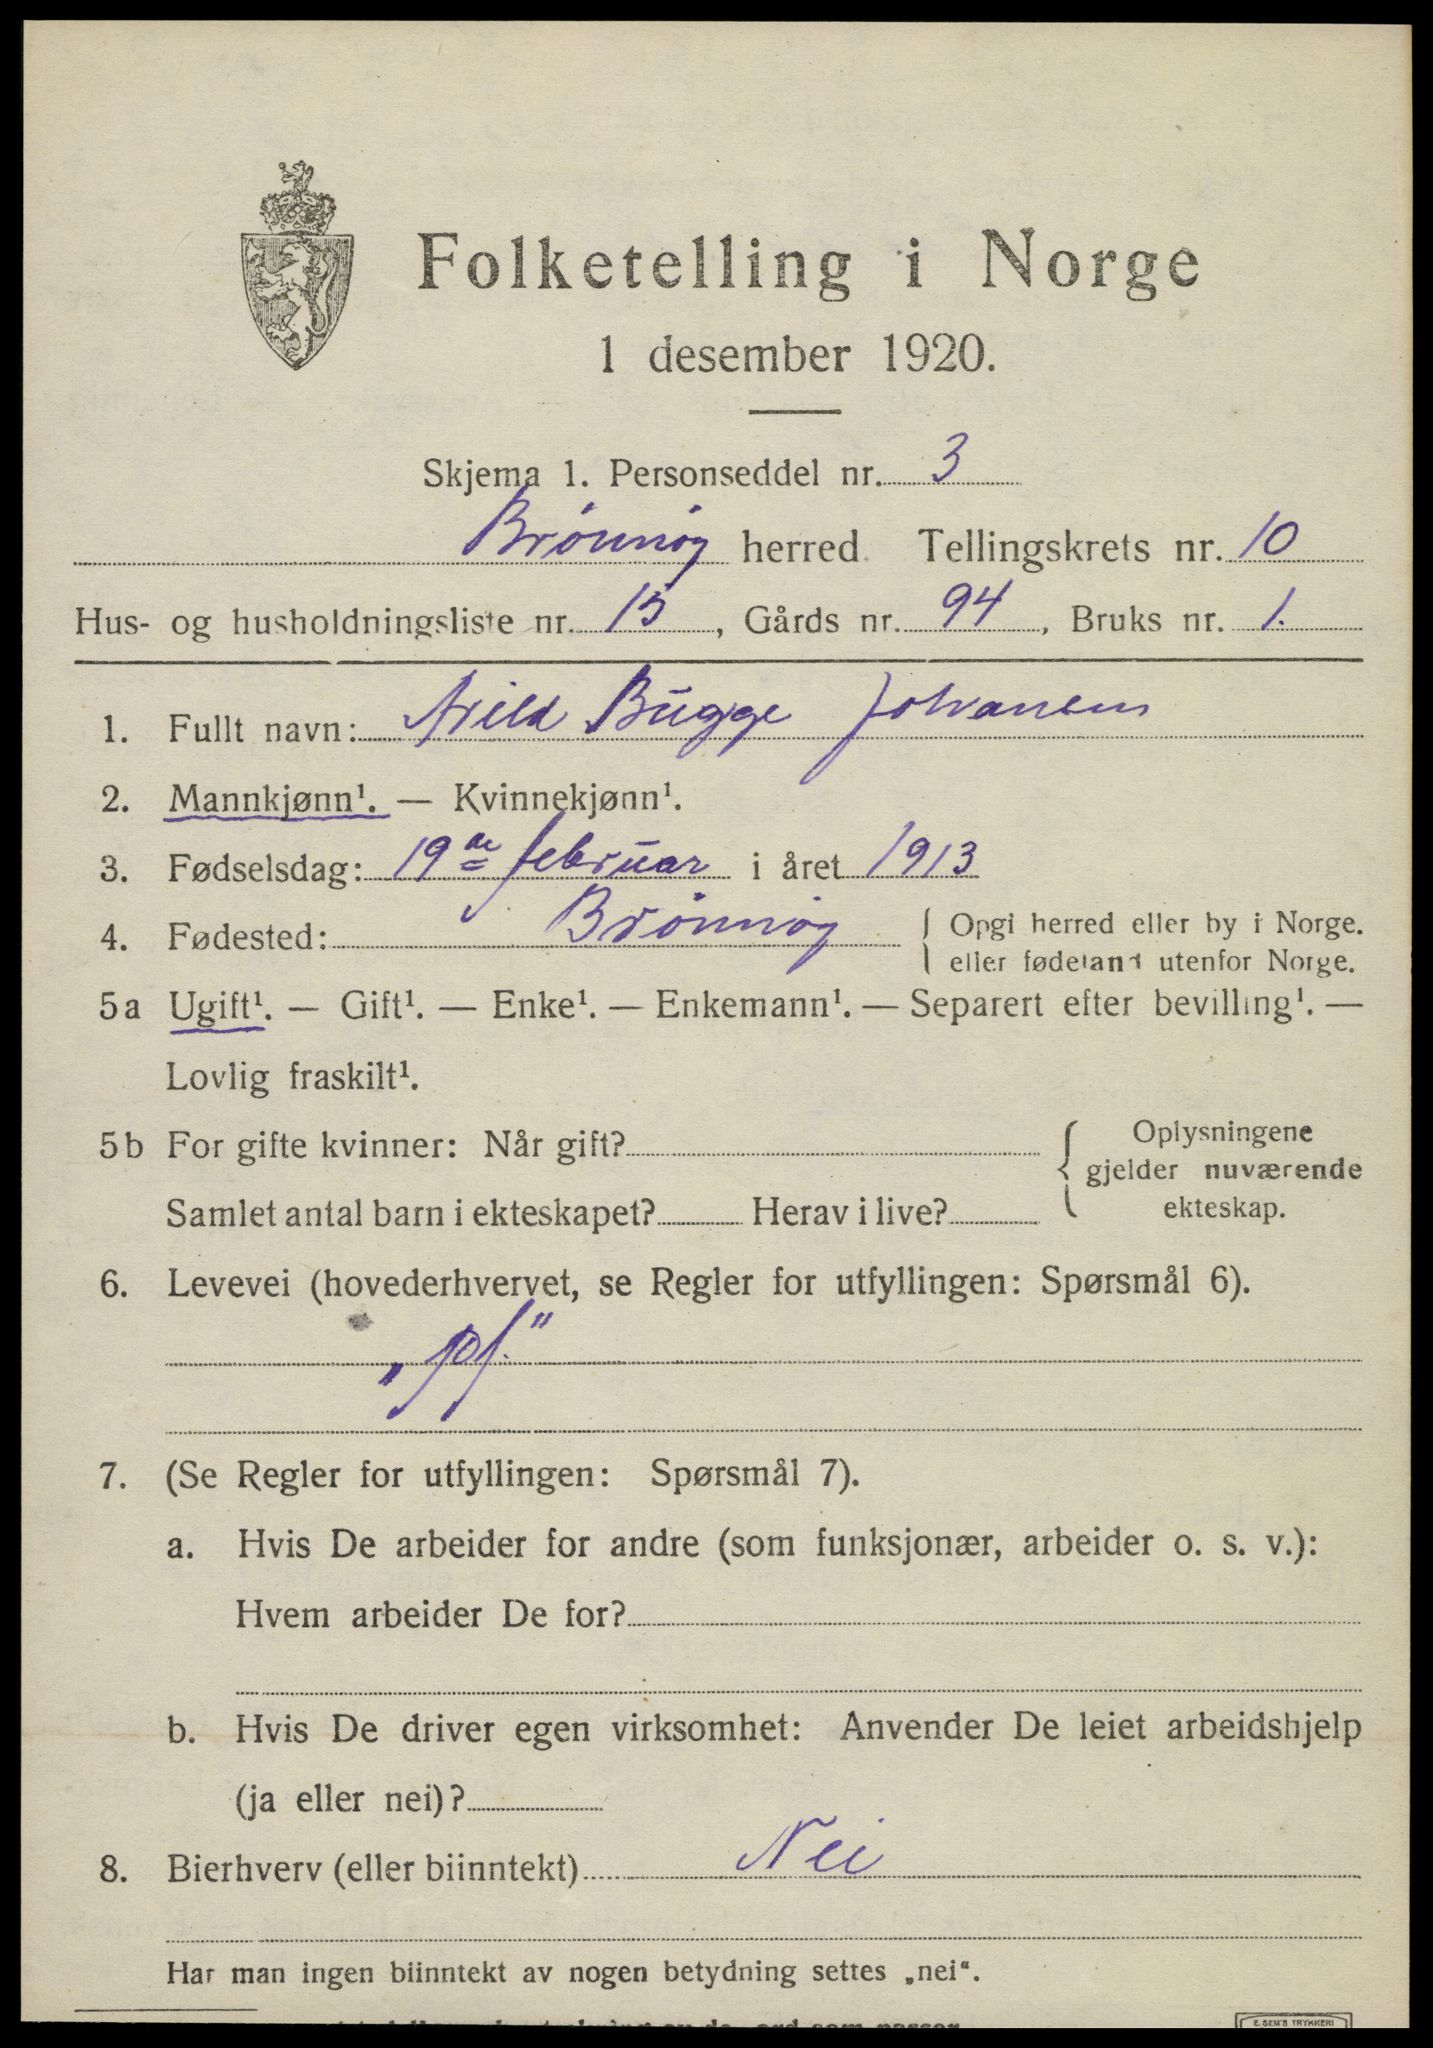 Folketelling i Norge
1 desember 1920.
Skjema 1. Personseddel nr. 3
Brønnøy herred. Tellingskrets nr. 10
Hus- og husholdningsliste nr. 15, Gårds nr. 94, Bruks nr. 1.
1. Fullt navn: Arild Bugge Johansen
2. Mannkjønn¹. — Kvinnekjønn¹.
3. Fødselsdag: 19de februar i året 1913
4. Fødested: Brønnøy { Opgi herred eller by i Norge.
eller fødeland utenfor Norge.
5a Ugift¹. — Gift¹. — Enke¹. — Enkemann¹. — Separert efter bevilling¹. —
Lovlig fraskilt¹.
5b For gifte kvinner: Når gift? { Oplysningene
gjelder nuværende
Samlet antal barn i ekteskapet? Herav i live? ekteskap.
6. Levevei (hovederhvervet, se Regler for utfyllingen: Spørsmål 6).
„pf."
7. (Se Regler for utfyllingen: Spørsmål 7).
a. Hvis De arbeider for andre (som funksjonær, arbeider o. s. v.):
Hvem arbeider De for?
b. Hvis De driver egen virksomhet: Anvender De leiet arbeidshjelp
(ja eller nei)?
8. Bierhverv (eller biinntekt) Nei
Har man ingen biinntekt av nogen betydning settes „nei“.
E. SEM'S TRYKKERI